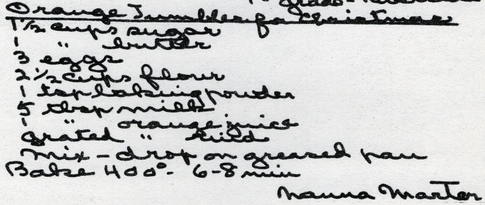 Orange Jumbles for Christmas
1 1/2 cups sugar
1 " butter
3 eggs
2 1/2 cups flour
1 tsp baking powder
5 tbsp milk
1 " orange juice
grated " rind
Mix - drop on greased pan
Bake 400° - 6-8 min
Nanna Marter